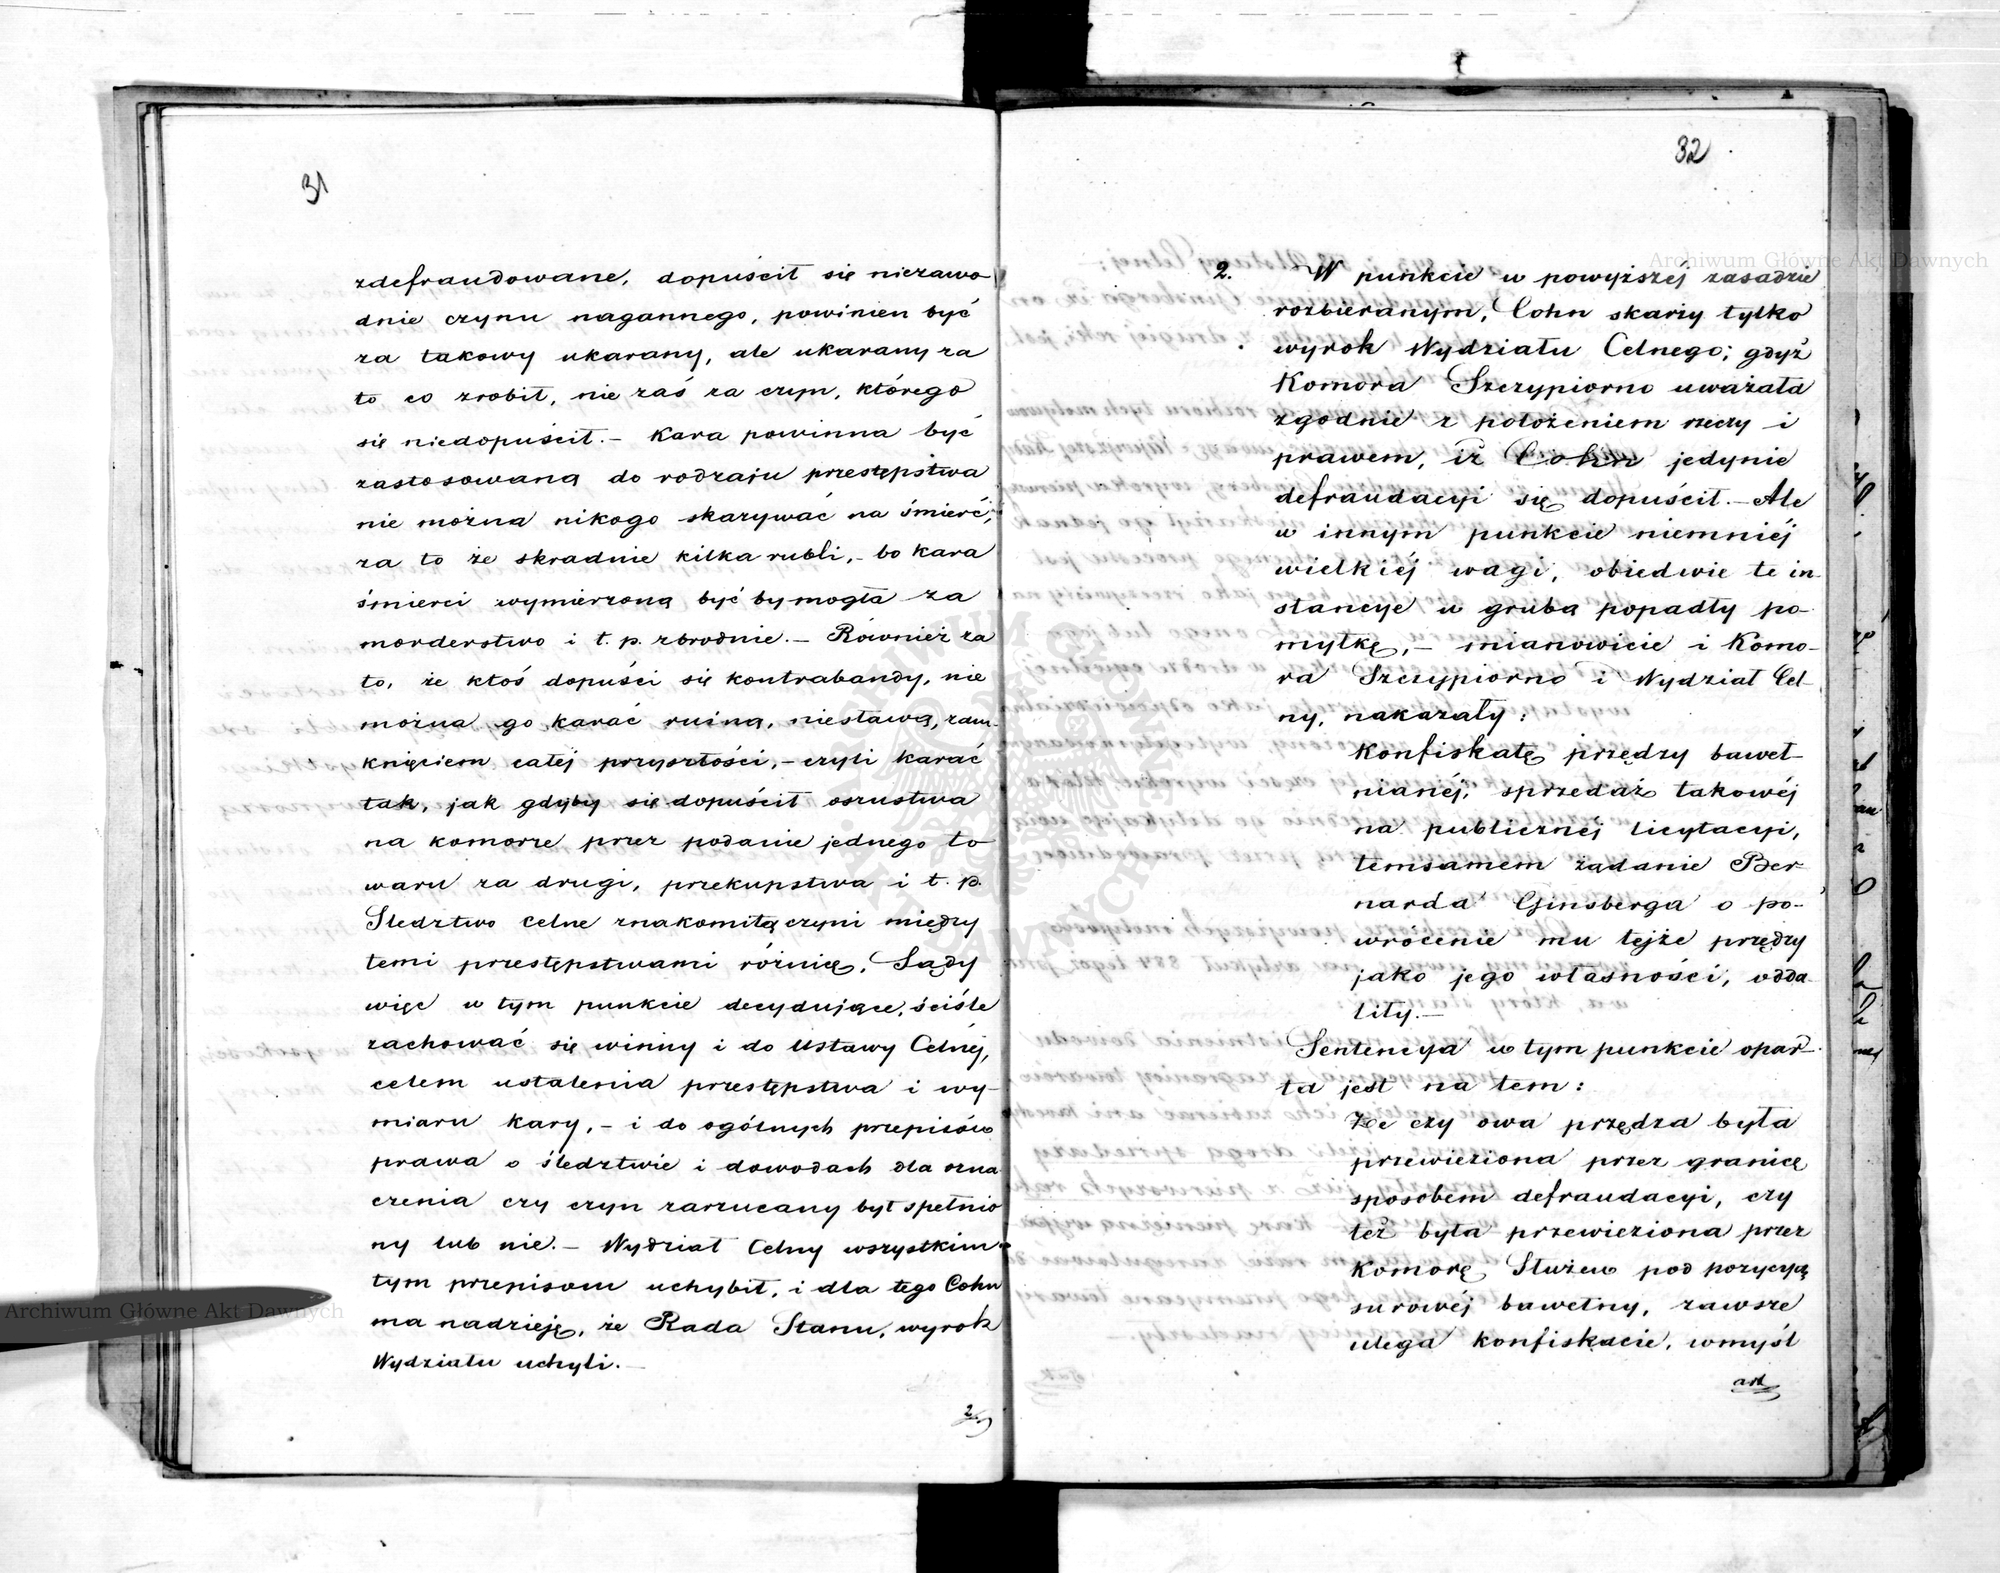 31
zdefraudowane, dopuścił się niezawo
dnie czynu nagannego, powinien być
za takowy ukarany, ale ukarany za
to co zrobił, nie zaś za czyn, którego
się niedopuścił. – Kara powinna być
zastosowaną do rodzaju przestępstwa
nie można nikogo skazywać na śmierć,
za to że skradnie kilka rubli, – bo kara
śmierci wymierzoną być by mogła za
morderstwo i t. p. zbrodnie. – Również za
to, że ktoś dopuści się kontrabandy, nie
można go karać ruiną, niesławą, zam-
knięciem całéj przyszłości, – czyli karać
tak, jak gdyby się dopuścił oszustwa
na komorze przez podanie jednego to
waru za drugi, przekupstwa i t. p.
Śledztwo celne znakomitą czyni między
temi przestępstwami różnicę. Sądy
więc w tym punkcie decydujące, ściśle
zachować się winny i do Ustawy Celnéj,
celem ustalenia przestępstwa i wy-
miaru kary, – i do ogólnych przepisów
prawa o śledztwie i dowodach dla ozna
czenia czy czyn zarzucany był spełnio
ny lub nie. – Wydział Celny wszystkim
tym przepisom uchybił, i dla tego Cohn
ma nadzieję, że Rada Stanu, wyrok
Wydziału uchyli. –
2.
32
2. W punkcie w powyższéj zasadzie
rozbieranym, Cohn skarży tylko
wyrok Wydziału Celnego; gdyż
Komora Szczypiorno uważała
zgodnie z położeniem rzeczy i
prawem, iż Cohn jedynie
defraudacyi się dopuścił. – Ale
w innym punkcie niemniéj
wielkiéj wagi, obiedwie te in-
stancye w grubą popadły po-
myłkę, – mianowicie i Komo-
ra Szczypiorno i Wydział Cel-
ny, nakazały:
Konfiskatę przędzy baweł-
nianéj, sprzedaż takowéj
na publicznéj licytacyi,
temsamem żądanie Ber-
narda Ginsberga o po-
wrócenie mu tejże przędzy
jako jego własności, odda-
liły. –
Sentencya w tym punkcie opar-
ta jest na tem:
Że czy owa przędza była
przewieziona przez granicę
sposobem defraudacyi, czy
też była przewieziona przez
Komorę Służew pod pozycyą
surowéj bawełny, zawsze
ulega konfiskacie, wmyśl
art